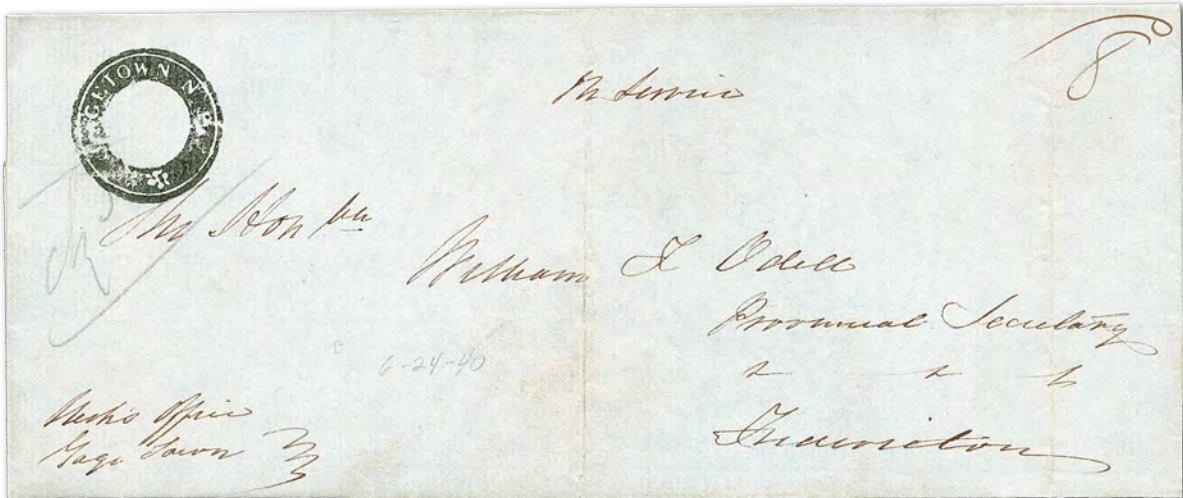 GETOWN N.B.
On Service
8
The Honble
William F Odell
Provincial Secretary
Fredericton
6-24-40
Clerks Office
Gage Town